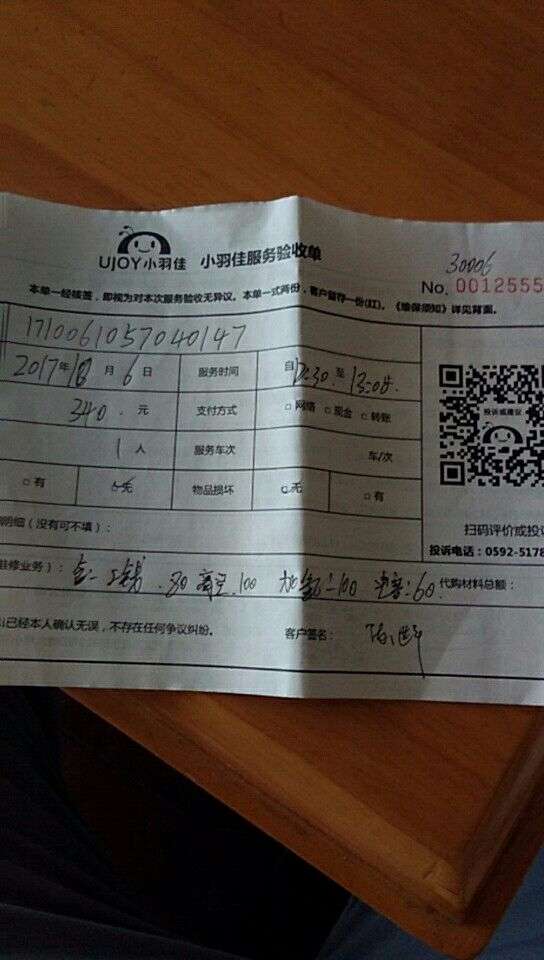 UJOY小羽佳 小羽佳服务验收单
30006
No. 0012555
本单一经核签，即视为对本次服务验收无异议。本单一式两份，客户留存一份(红)。《维保须知》详见背面。
1710061057040147
2017年10月6日 服务时间 自12:30至13:08
340.元 支付方式 □网络 □现金 □转账
1人 服务车次 车/次
□有 □无 物品损坏 □无 □有
投诉或建议
明细（没有可不填）：
扫码评价或投
投诉电话：0592-5178
维修业务）： 80 高空.100 100 :60 代购材料总额：
已经本人确认无误，不存在任何争议纠纷。 客户签名：